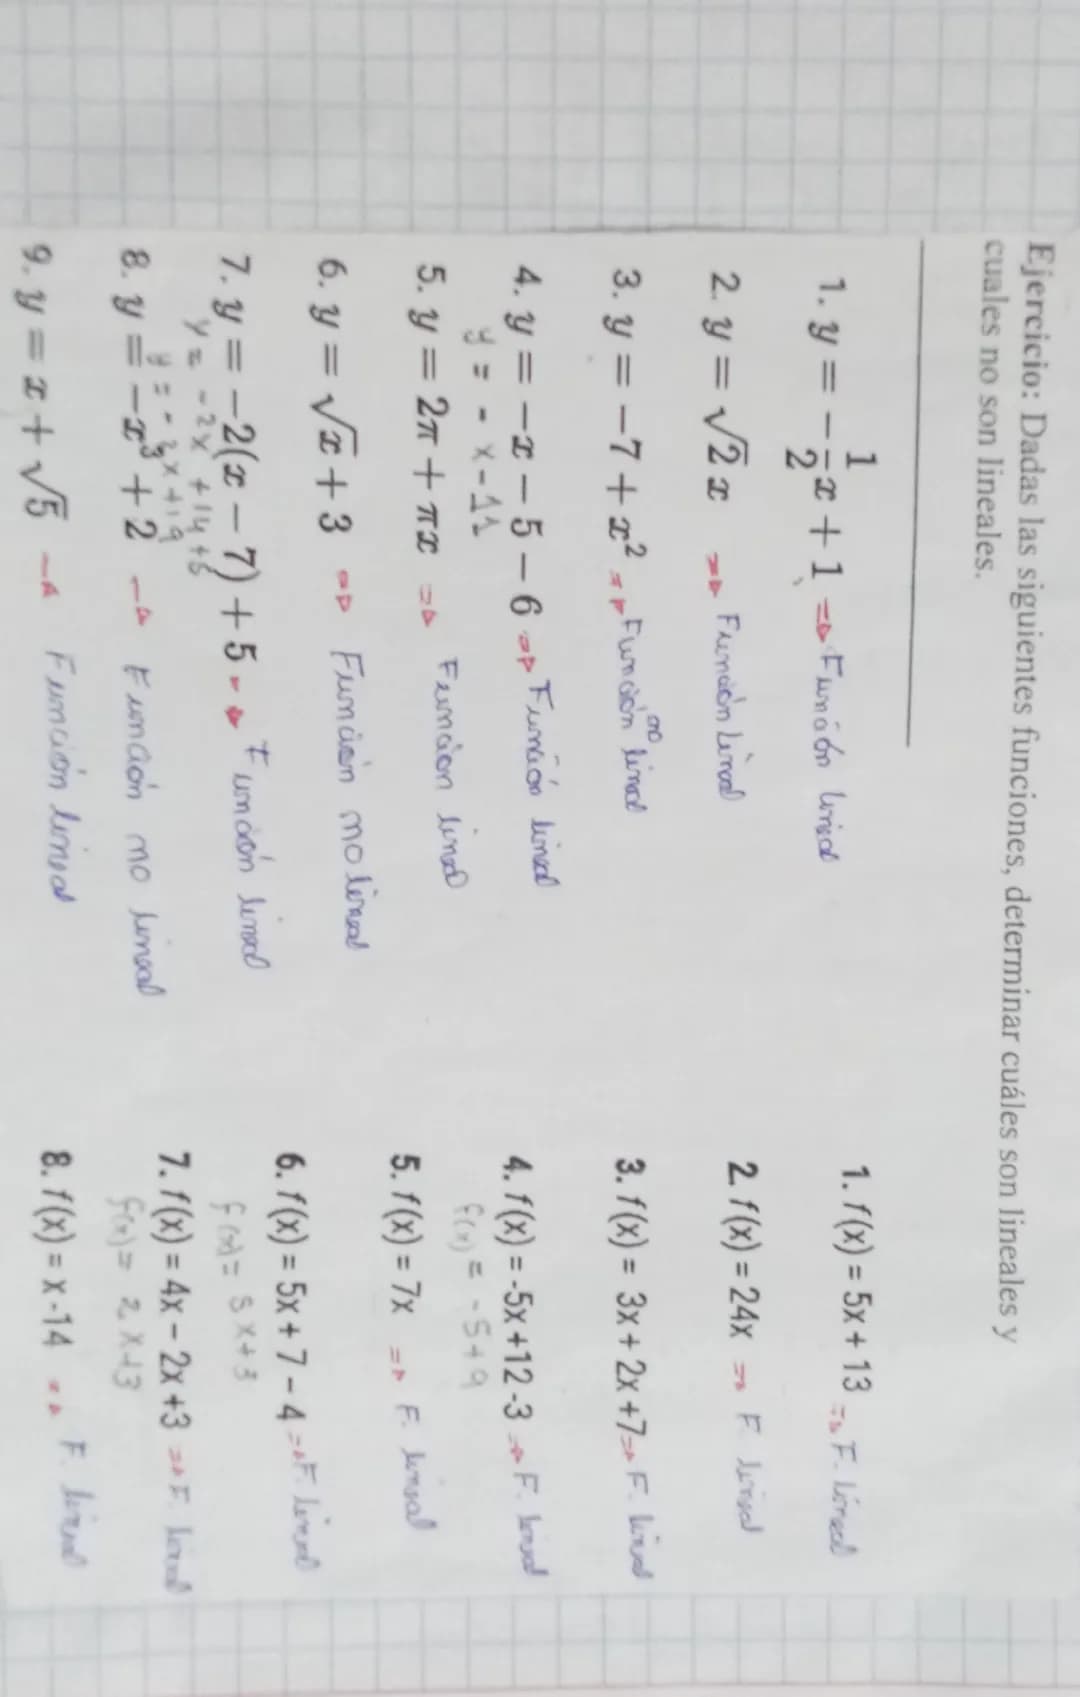 Ejercicio: Dadas las siguientes funciones, determinar cuáles son lineales y
cuales no son lineales.
1. y = -1/2 x + 1 => Función lineal
2. y = √2 x => Función Lineal
3. y = -7 + x² => Función no lineal
4. y = -x - 5 - 6 => Función lineal
y = - x - 11
5. y = 2π + πx => Función lineal
6. y = √x + 3 => Función no lineal
7. y = -2(x - 7) + 5 -> Función lineal
y = -2x + 14 + 5
y = - 2x + 19
8. y = -x³ + 2 -> Función no lineal
9. y = x + √5 -> Función lineal
1. f(x) = 5x + 13 => F. Lineal
2. f(x) = 24x => F. lineal
3. f(x) = 3x + 2x +7 => F. lineal
4. f(x) = -5x +12 -3 => F. lineal
f(x) = -5+9
5. f(x) = 7x => F. lineal
6. f(x) = 5x + 7 - 4 => F. lineal
f(x) = 5x+3
7. f(x) = 4x - 2x +3 => F. lineal
f(x) = 2x+3
8. f(x) = x -14 => F. lineal